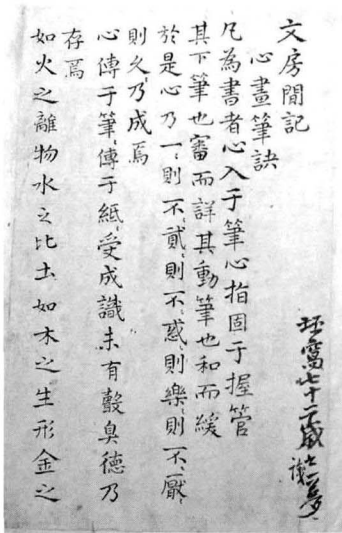 文房閒記
心畫筆訣
凡為書者心入于筆心指固于握管
其下筆也審而詳其動筆也和而緩
於是心乃一、則不貳、則不惑、則樂、則不厭、
則久乃成焉
心傳于筆、傳于紙、受成識未有聲臭德乃
存焉
如火之離物水之比土如木之生形金之